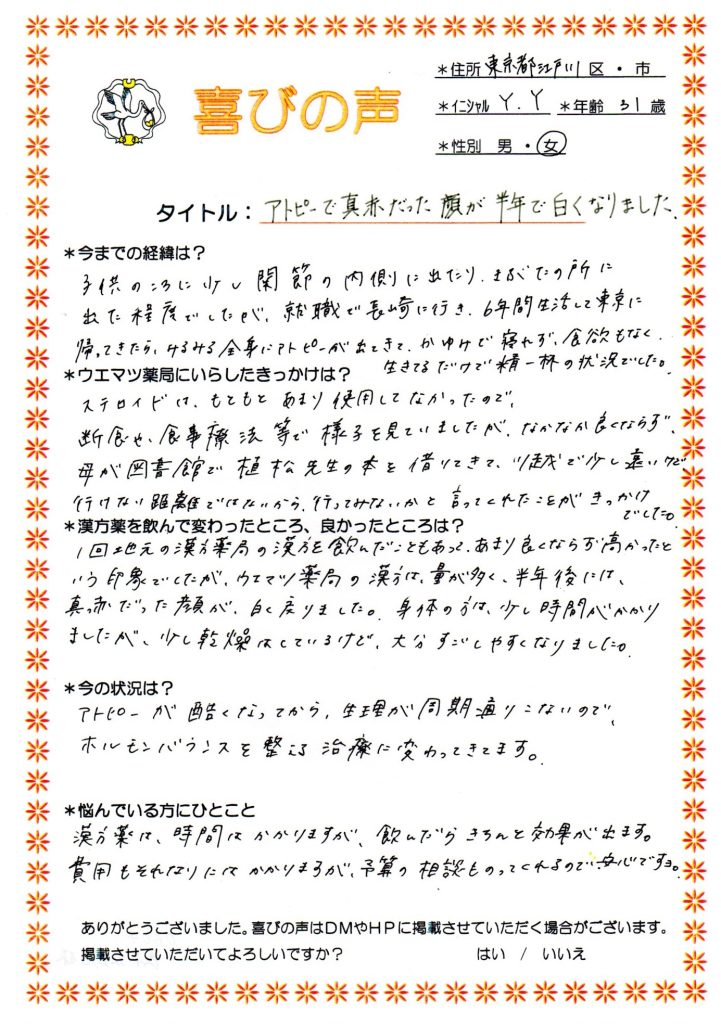 喜びの声
*住所 東京都江戸川区・市
*イニシャル Y.Y *年齢 31歳
*性別 男・女
タイトル:アトピーで真赤だった顔が半年で白くなりました。
*今までの経緯は?
子供のころに少し関節の内側に出たり、まぶたの所に
出た程度でしたが、就職で長崎に行き、6年間生活して東京に
帰ってきたら、みるみる全身にアトピーが出てきて、かゆみで寝れず、食欲もなく
生きてるだけで精一杯の状況でした。
*ウエマツ薬局にいらしたきっかけは?
ステロイドは、もともとあまり使用してなかったので、
断食や、食事療法等で様子を見ていましたが、なかなか良くならず、
母が図書館で植松先生の本を借りてきて、川越で少し遠いけど
行けない距離ではないから、行ってみないかと言ってくれたことがきっかけ
でした。
*漢方薬を飲んで変わったところ、良かったところは?
1回地元の漢方薬局の漢方を飲んだこともあって、あまり良くならず高かったと
いう印象でしたが、ウエマツ薬局の漢方は、量が多く、半年後には、
真っ赤だった顔が、白く戻りました。身体の方は、少し時間がかかり
ましたが、少し乾燥はしているけど、大分すごしやすくなりました。
*今の状況は?
アトピーが酷くなってから、生理が周期通りこないので、
ホルモンバランスを整える治療に変わってきてます。
*悩んでいる方にひとこと
漢方薬は、時間はかかりますが、飲んだらきちんと効果が出ます。
費用もそれなりにはかかりますが、予算の相談ものってくれるので、安心ですョ。
ありがとうございました。喜びの声はDMやHPに掲載させていただく場合がございます。
掲載させていただいてよろしいですか? はい / いいえ